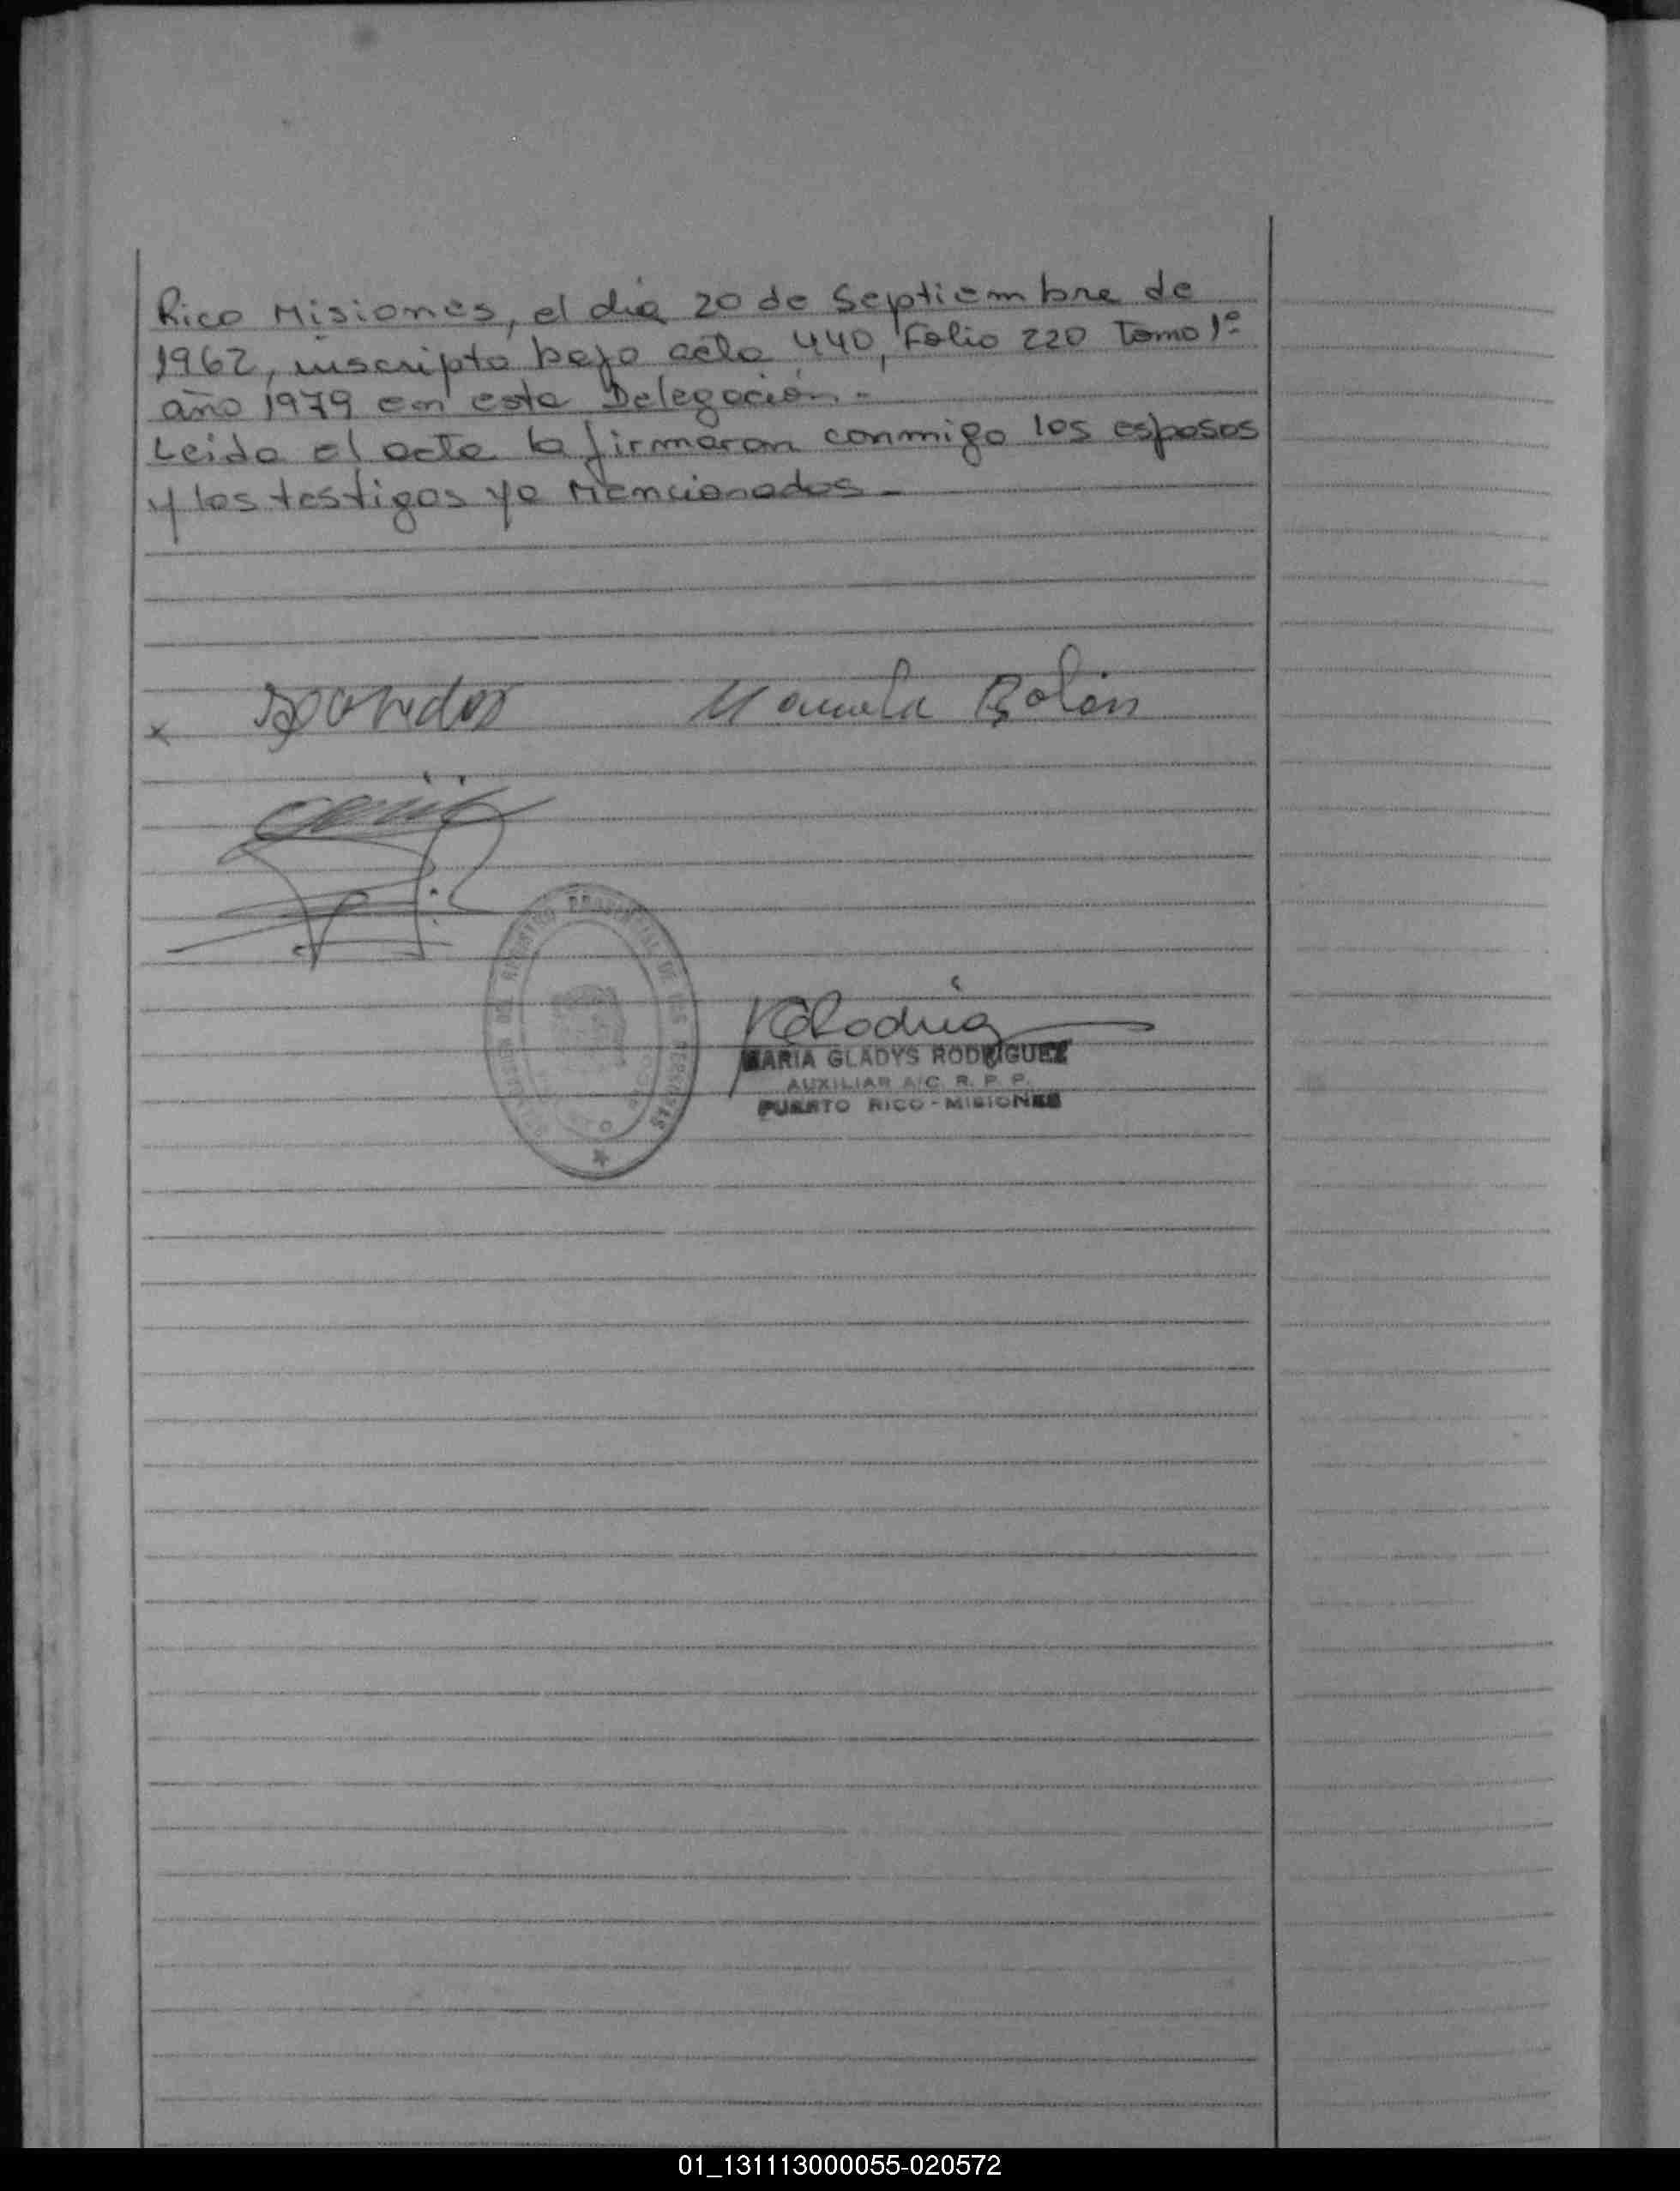 Rico Misiones, el día 20 de Septiembre de
1962, inscripto bajo acta 440, Folio 220 Tomo 1º
año 1979 en esta Delegación.-
Leida el acta la firmaron conmigo los esposos
y los testigos ya Mencionados.-
x
Manuela Bolán
REGISTRO PROVINCIAL DE LAS PERSONAS
MARIA GLADYS RODRIGUEZ
AUXILIAR A/C. R. P. P.
PUERTO RICO - MISIONES
01_131113000055-020572